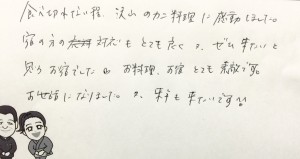 食べ切れない程、沢山のカニ料理に感動しました。
宿の方の対応もとても良く、ぜひ来たいと
思うお宿でした。お料理、お宿とても素敵です。
お世話になりました。来年も来たいです